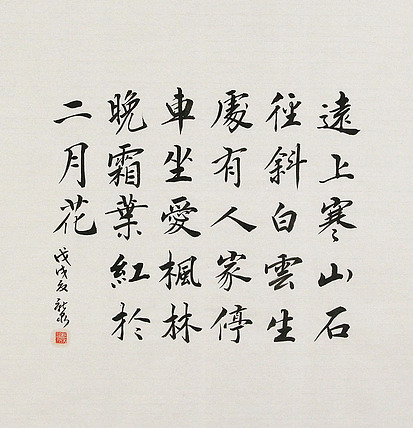 遠上寒山石
徑斜白雲生
處有人家停
車坐愛楓林
晚霜葉紅於
二月花
戊戌夏